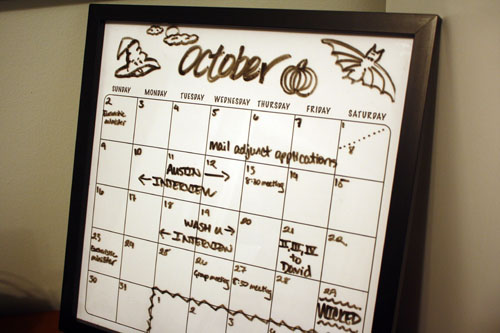 October
SUNDAY MONDAY TUESDAY WEDNESDAY THURSDAY FRIDAY SATURDAY
2 3 4 5 6 7 1
8
minister
mail adjunct applications
9 10 11 12 13 14 15
AUSTIN
INTERVIEW
8:30 meeting
16 17 18 19 20 21 22
WASH U
INTERVIEW
II, III, IV
to
David
23 24 25 26 27 28 29
minister
Group meeting
8:30 meeting
WICKED
30 31 1 2 3